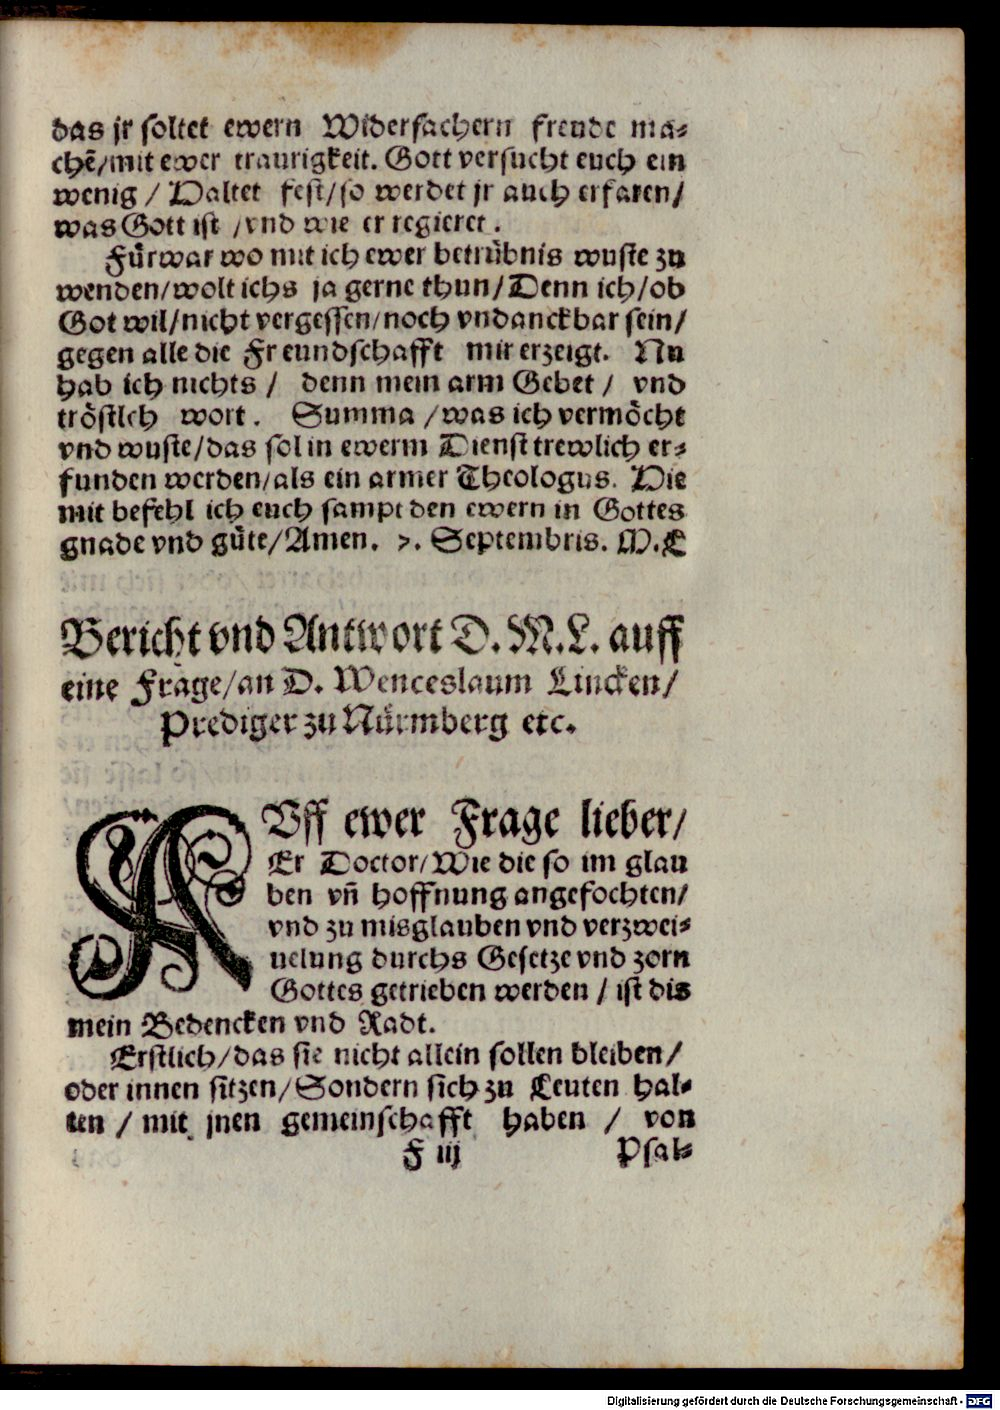 das jr soltet ewern Widersachern freude ma-
chẽ/mit ewer traurigkeit. Gott versucht euch ein
wenig / Haltet fest/so werdet jr auch erfaren/
was Gott ist /vnd wie er regieret.
Fürwar wo mit ich ewer betrübnis wuste zu
wenden/wolt ichs ja gerne thun/Denn ich/ob
Got wil/nicht vergessen/noch vndanckbar sein/
gegen alle die Freundschafft mir erzeigt. Nu
hab ich nichts / denn mein arm Gebet / vnd
tröstlch wort. Summa /was ich vermöcht
vnd wuste/das sol in ewerm Dienst trewlich er-
funden werden/als ein armer Theologus. Hie
mit befehl ich euch sampt den ewern in Gottes
gnade vnd güte/Amen. 7. Septembris. M.L
Bericht vnd Antwort D. M. L. auff
eine Frage/an D. Wenceslaum Lincken/
Prediger zu Nürmberg etc.
AVff ewer Frage lieber/
Er Doctor/Wie die so im glau
ben vñ hoffnung angefochten/
vnd zu misglauben vnd verzwei-
uelung durchs Gesetze vnd zorn
Gottes getrieben werden / ist dis
mein Bedencken vnd Radt.
Erstlich/das sie nicht allein sollen bleiben/
oder innen sitzen/Sondern sich zu Leuten hal-
ten / mit jnen gemeinschafft haben / von
F iij Psal-
Digitalisierung gefördert durch die Deutsche Forschungsgemeinschaft - DFG